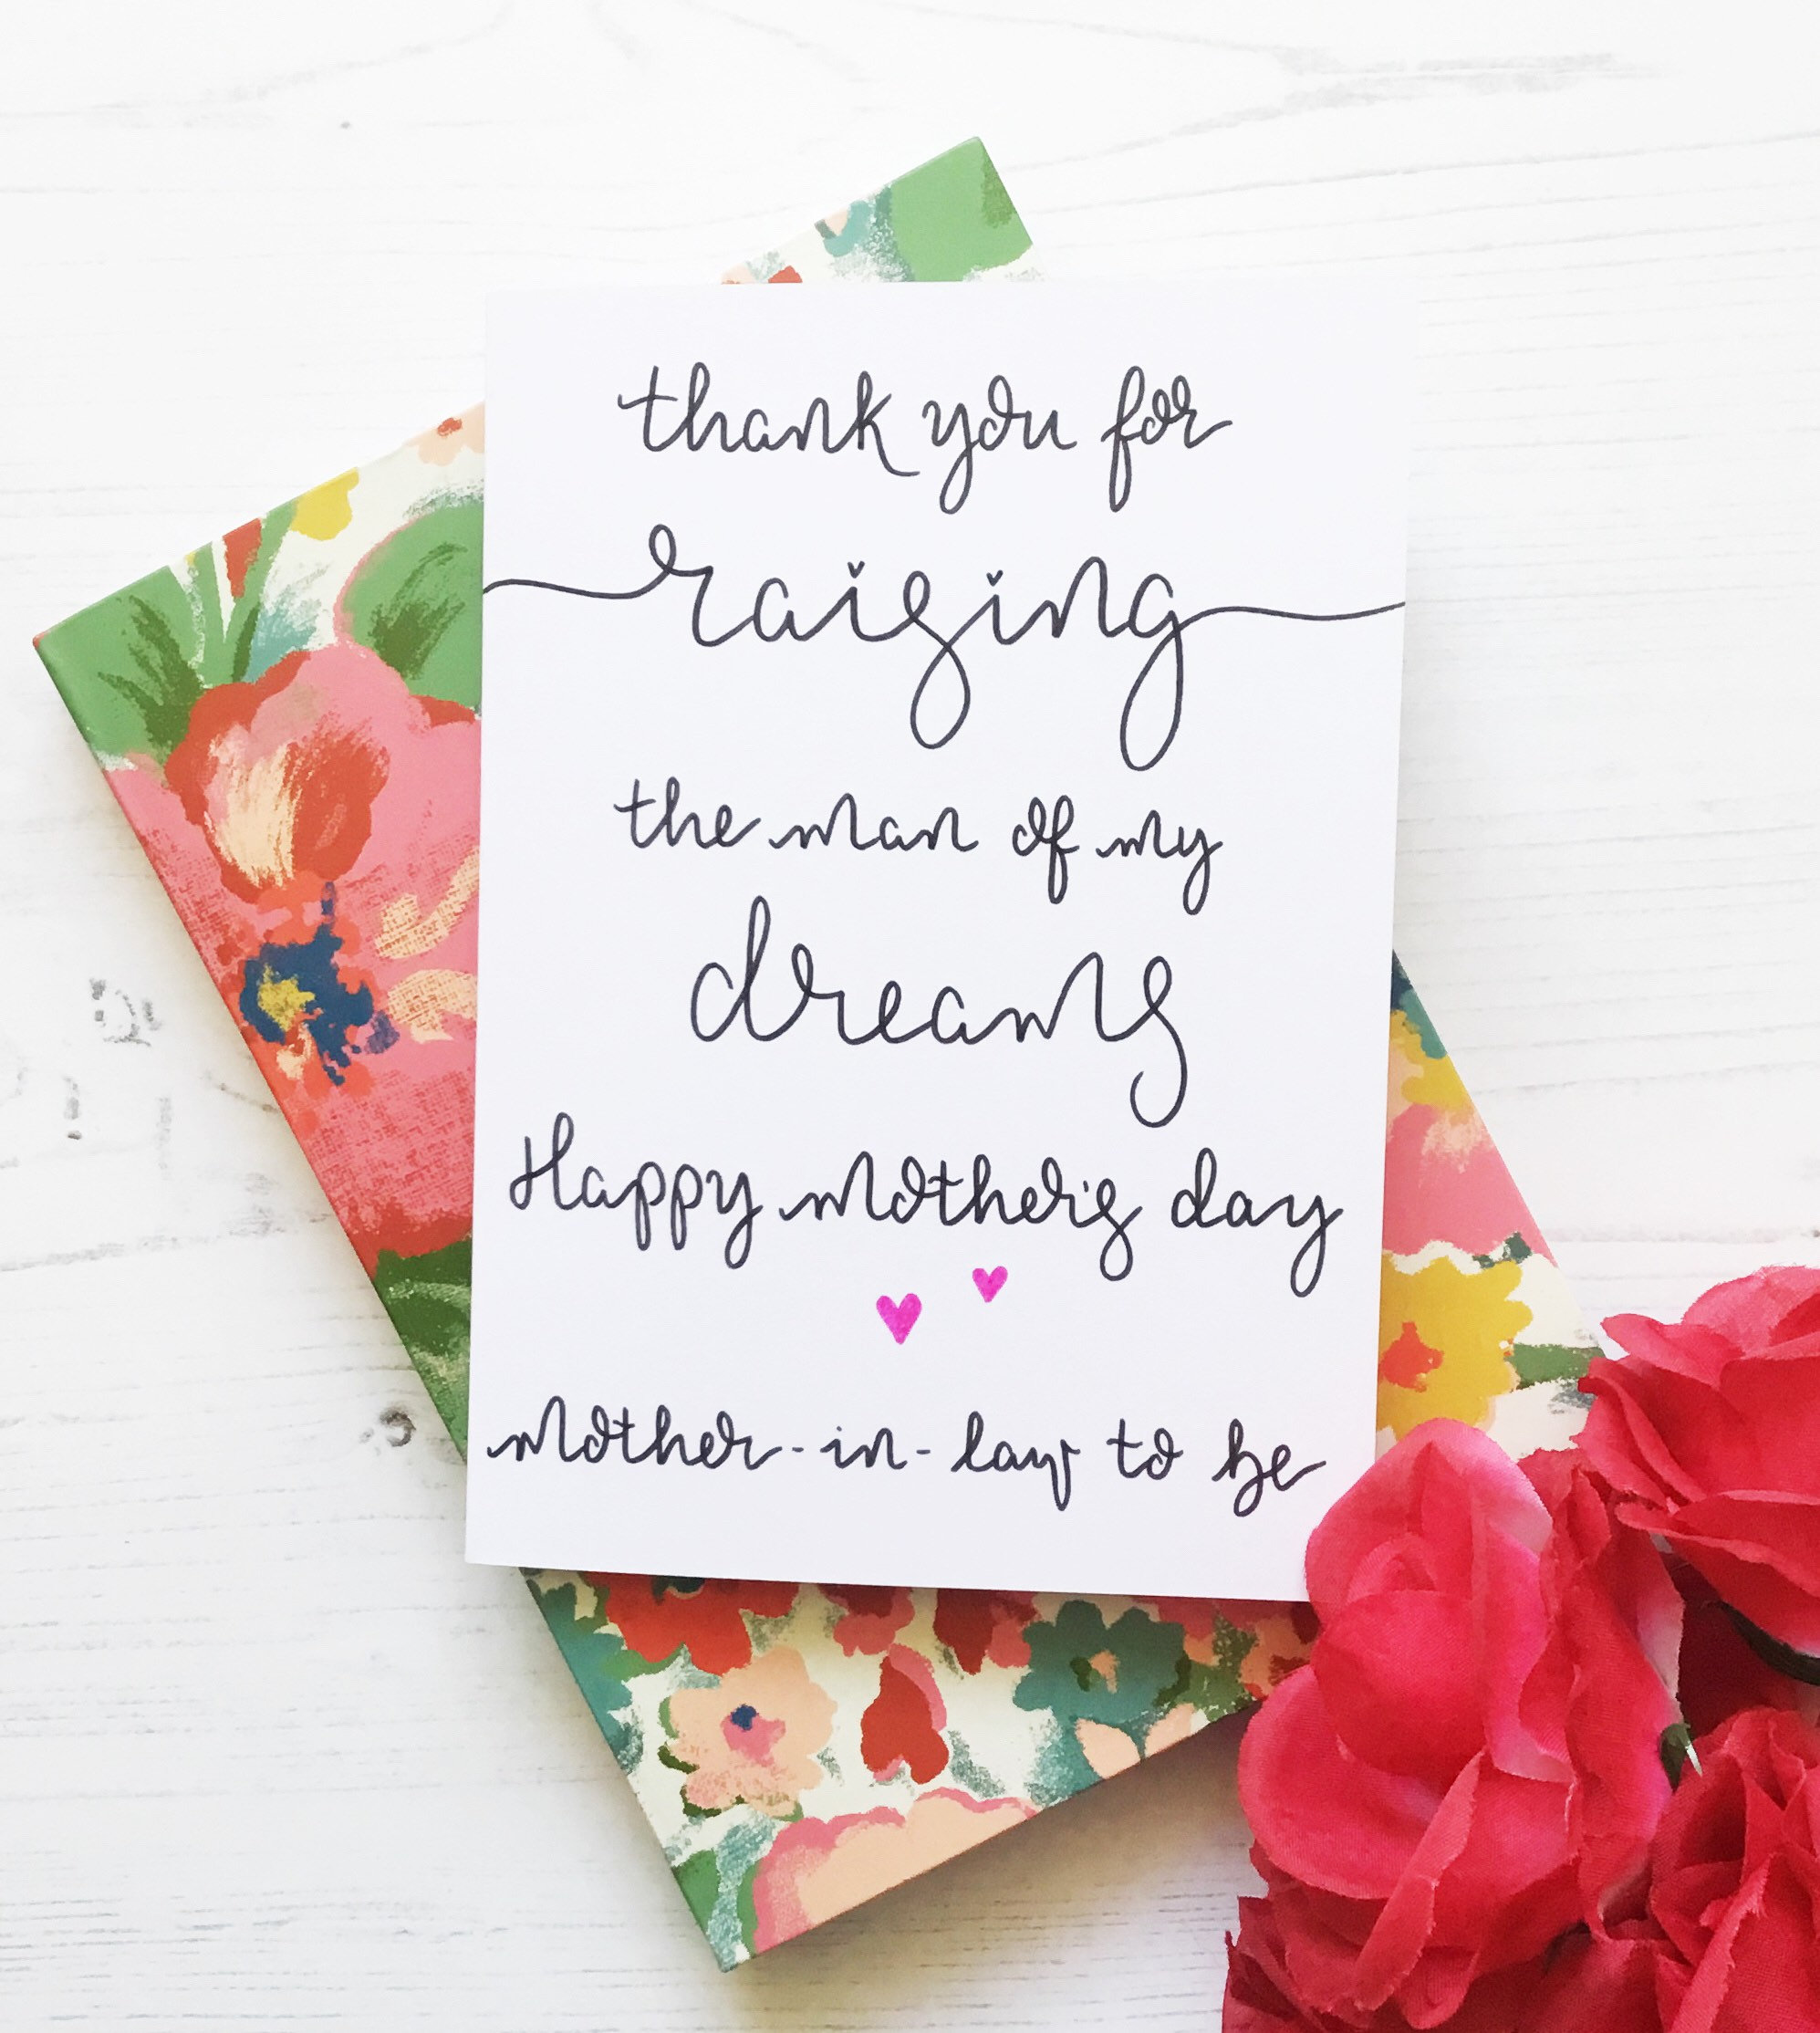 thank you for
raising
the man of my
dreams
Happy mother's day
mother-in-law to be